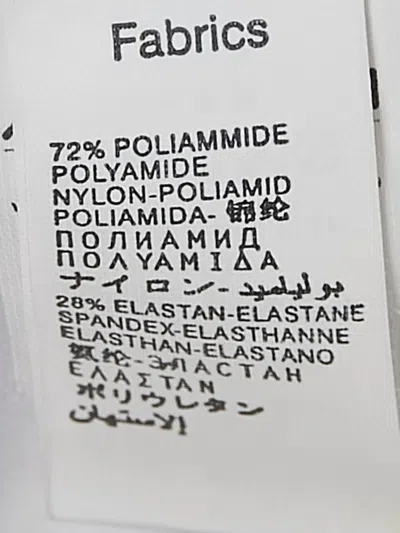 Fabrics
72% POLIAMMIDE
POLYAMIDE
NYLON-POLIAMID
POLIAMIDA- 锦纶
ПОЛИАМИД
ΠΟΛΥΑΜΙΔΑ
ナイロン- بولياميد
28% ELASTAN-ELASTANE
SPANDEX-ELASTHANNE
ELASTHAN-ELASTANO
氨纶-ЭЛАСТАН
ΕΛΑΣΤΑΝ
ポリウレタン